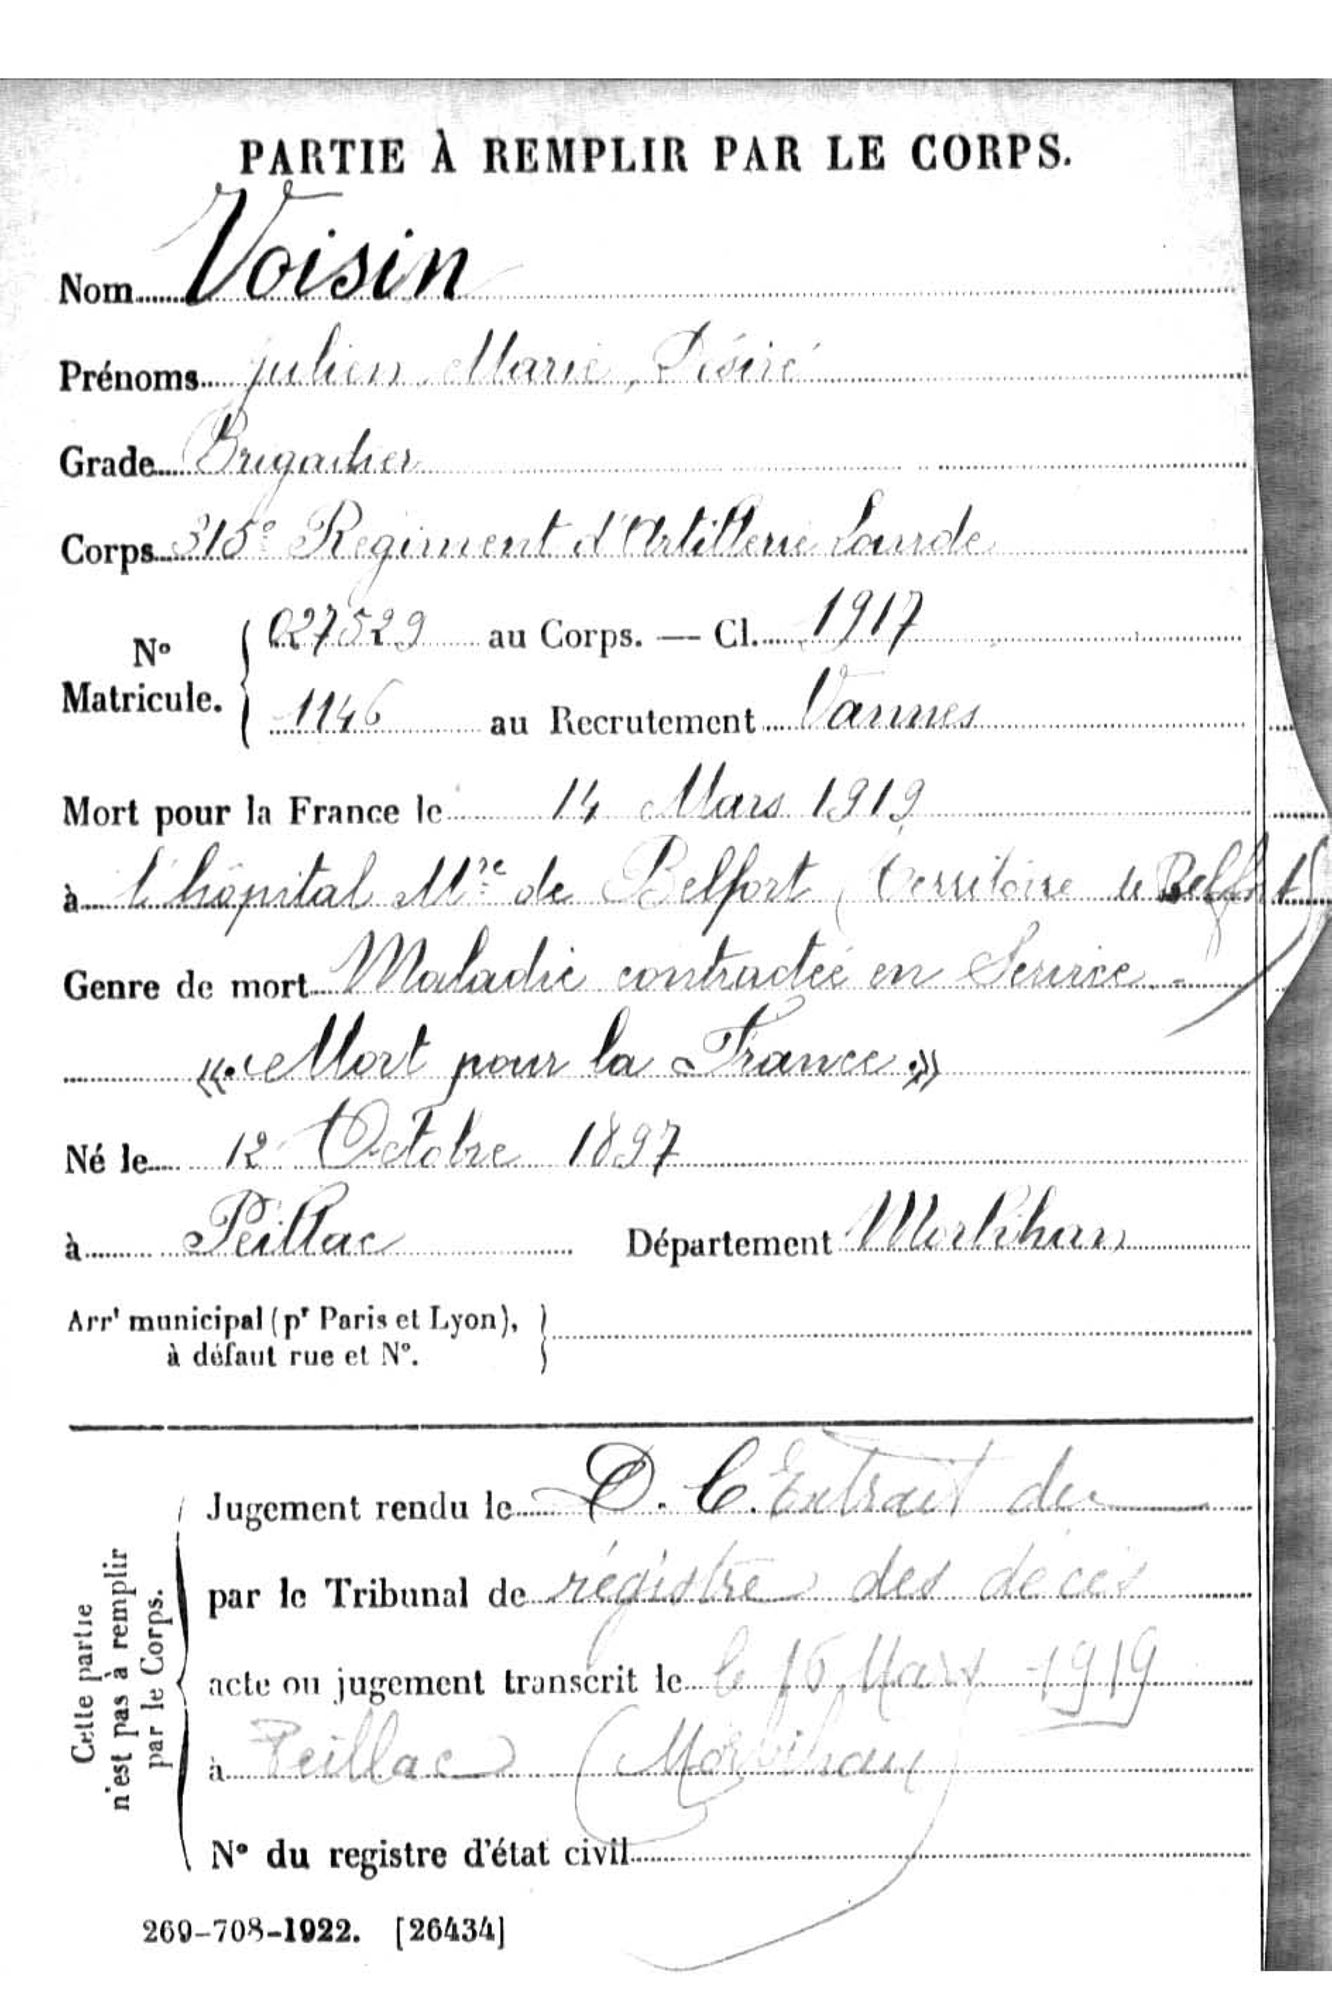 PARTIE À REMPLIR PAR LE CORPS.
Nom Voisin
Prénoms Julien Marie, Désiré
Grade Brigadier
Corps 315e Régiment d'Artillerie Lourde
N° Matricule. 027529 au Corps. — Cl. 1917
1146 au Recrutement Vannes
Mort pour la France le 14 Mars 1919
à l'hôpital Mre de Belfort (Territoire de Belfort)
Genre de mort Maladie contractée en Service -
« Mort pour la France »
Né le 12 Octobre 1897
à Peillac Département Morbihan
Arrt municipal (pr Paris et Lyon),
à défaut rue et N°.
Cette partie
n'est pas à remplir
par le Corps.
Jugement rendu le D. C. Extrait du
par le Tribunal de régistre des décès
acte ou jugement transcrit le le 15 Mars 1919
à Peillac (Morbihan)
N° du registre d'état civil
269-708-1922. [26434]